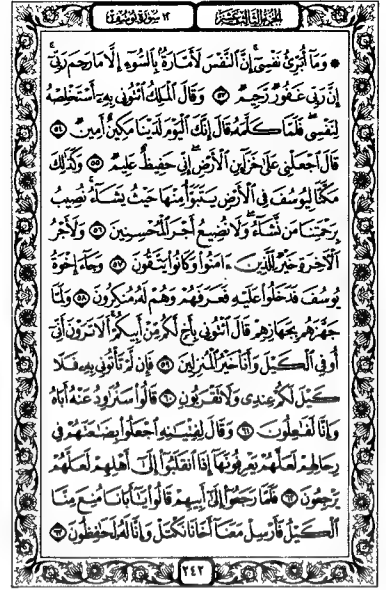 الجزء الثالث عشر
١٢ سورة يوسف
۞ وَمَآ أُبَرِّئُ نَفْسِىٓ ۚ إِنَّ ٱلنَّفْسَ لَأَمَّارَةٌۢ بِٱلسُّوٓءِ إِلَّا مَا رَحِمَ رَبِّىٓ ۚ
إِنَّ رَبِّى غَفُورٌ رَّحِيمٌ ۝٥٣ وَقَالَ ٱلْمَلِكُ ٱئْتُونِى بِهِۦٓ أَسْتَخْلِصْهُ
لِنَفْسِى ۖ فَلَمَّا كَلَّمَهُۥ قَالَ إِنَّكَ ٱلْيَوْمَ لَدَيْنَا مَكِينٌ أَمِينٌ ۝٥٤
قَالَ ٱجْعَلْنِى عَلَىٰ خَزَآئِنِ ٱلْأَرْضِ ۖ إِنِّى حَفِيظٌ عَلِيمٌ ۝٥٥ وَكَذَٰلِكَ
مَكَّنَّا لِيُوسُفَ فِى ٱلْأَرْضِ يَتَبَوَّأُ مِنْهَا حَيْثُ يَشَآءُ ۚ نُصِيبُ
بِرَحْمَتِنَا مَن نَّشَآءُ ۖ وَلَا نُضِيعُ أَجْرَ ٱلْمُحْسِنِينَ ۝٥٦ وَلَأَجْرُ
ٱلْـَٔاخِرَةِ خَيْرٌ لِّلَّذِينَ ءَامَنُوا۟ وَكَانُوا۟ يَتَّقُونَ ۝٥٧ وَجَآءَ إِخْوَةُ
يُوسُفَ فَدَخَلُوا۟ عَلَيْهِ فَعَرَفَهُمْ وَهُمْ لَهُۥ مُنكِرُونَ ۝٥٨ وَلَمَّا
جَهَّزَهُم بِجَهَازِهِمْ قَالَ ٱئْتُونِى بِأَخٍ لَّكُم مِّنْ أَبِيكُمْ ۚ أَلَا تَرَوْنَ أَنِّىٓ
أُوفِى ٱلْكَيْلَ وَأَنَا۠ خَيْرُ ٱلْمُنزِلِينَ ۝٥٩ فَإِن لَّمْ تَأْتُونِى بِهِۦ فَلَا
كَيْلَ لَكُمْ عِندِى وَلَا تَقْرَبُونِ ۝٦٠ قَالُوا۟ سَنُرَٰوِدُ عَنْهُ أَبَاهُ
وَإِنَّا لَفَٰعِلُونَ ۝٦١ وَقَالَ لِفِتْيَٰنِهِ ٱجْعَلُوا۟ بِضَٰعَتَهُمْ فِى
رِحَالِهِمْ لَعَلَّهُمْ يَعْرِفُونَهَآ إِذَا ٱنقَلَبُوٓا۟ إِلَىٰٓ أَهْلِهِمْ لَعَلَّهُمْ
يَرْجِعُونَ ۝٦٢ فَلَمَّا رَجَعُوٓا۟ إِلَىٰٓ أَبِيهِمْ قَالُوا۟ يَٰٓأَبَانَا مُنِعَ مِنَّا
ٱلْكَيْلُ فَأَرْسِلْ مَعَنَآ أَخَانَا نَكْتَلْ وَإِنَّا لَهُۥ لَحَٰفِظُونَ ۝٦٣
٢٤٢